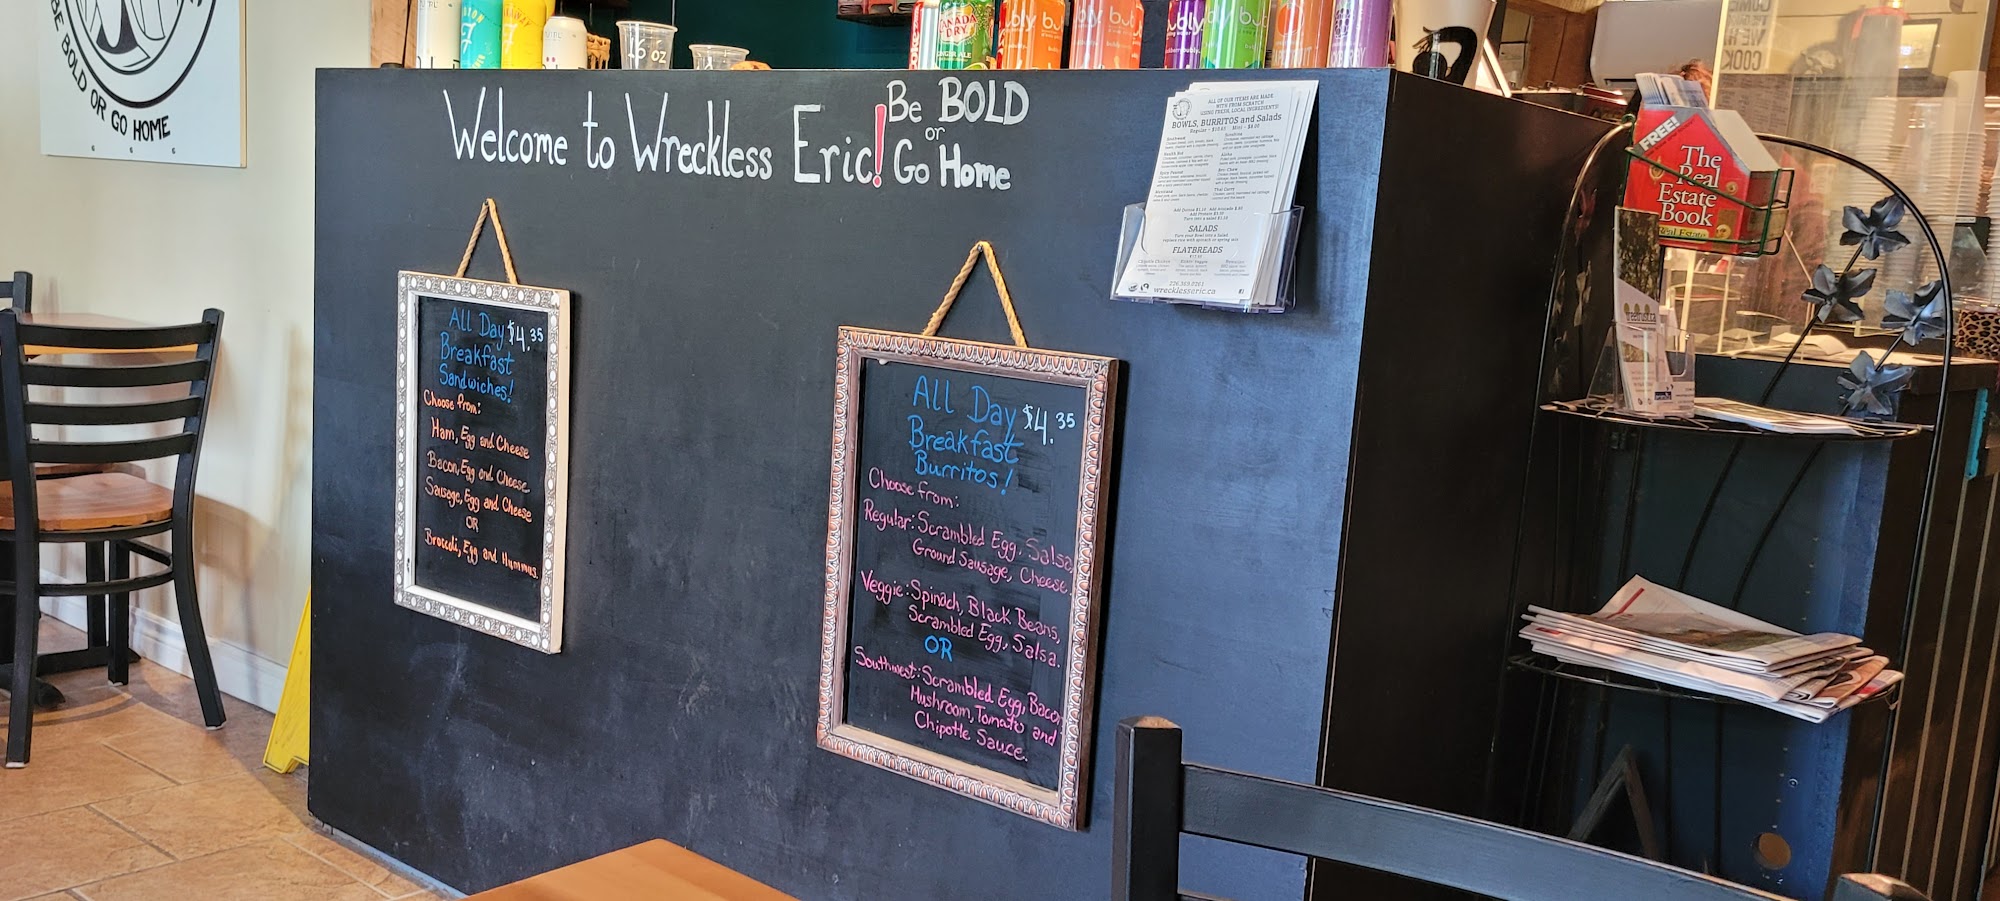 BE BOLD OR GO HOME
16 oz
CANADA
DRY
GINGER ALE
bubly
Welcome to Wreckless Eric!
Be BOLD
or
Go Home
All Day $4.35
Breakfast
Sandwiches!
Choose from:
Ham, Egg and Cheese
Bacon, Egg and Cheese
Sausage, Egg and Cheese
OR
Brocoli, Egg and Hummus.
All Day $4.35
Breakfast
Burritos!
Choose from:
Regular: Scrambled Egg, Salsa,
Ground Sausage, Cheese.
Veggie: Spinach, Black Beans,
Scrambled Egg, Salsa.
OR
Southwest: Scrambled Egg, Bacon
Mushroom, Tomato and
Chipotle Sauce.
ALL OF OUR ITEMS ARE MADE
WITH FROM SCRATCH
USING FRESH, LOCAL INGREDIENTS!
BOWLS, BURRITOS and Salads
SALADS
Turn your Bowl into a Salad
replace rice with spinach or spring mix
FLATBREADS
wrecklesseric.ca
FREE!
The
Real
Estate
Book
Real Estate
COOK